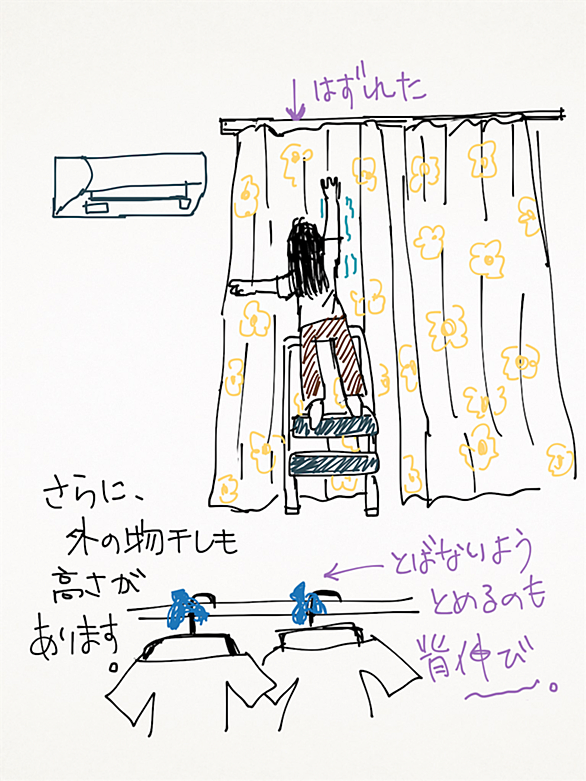 はずれた
さらに、
外の物干しも
高さが
あります。
とばないよう
とめるのも
背伸び。